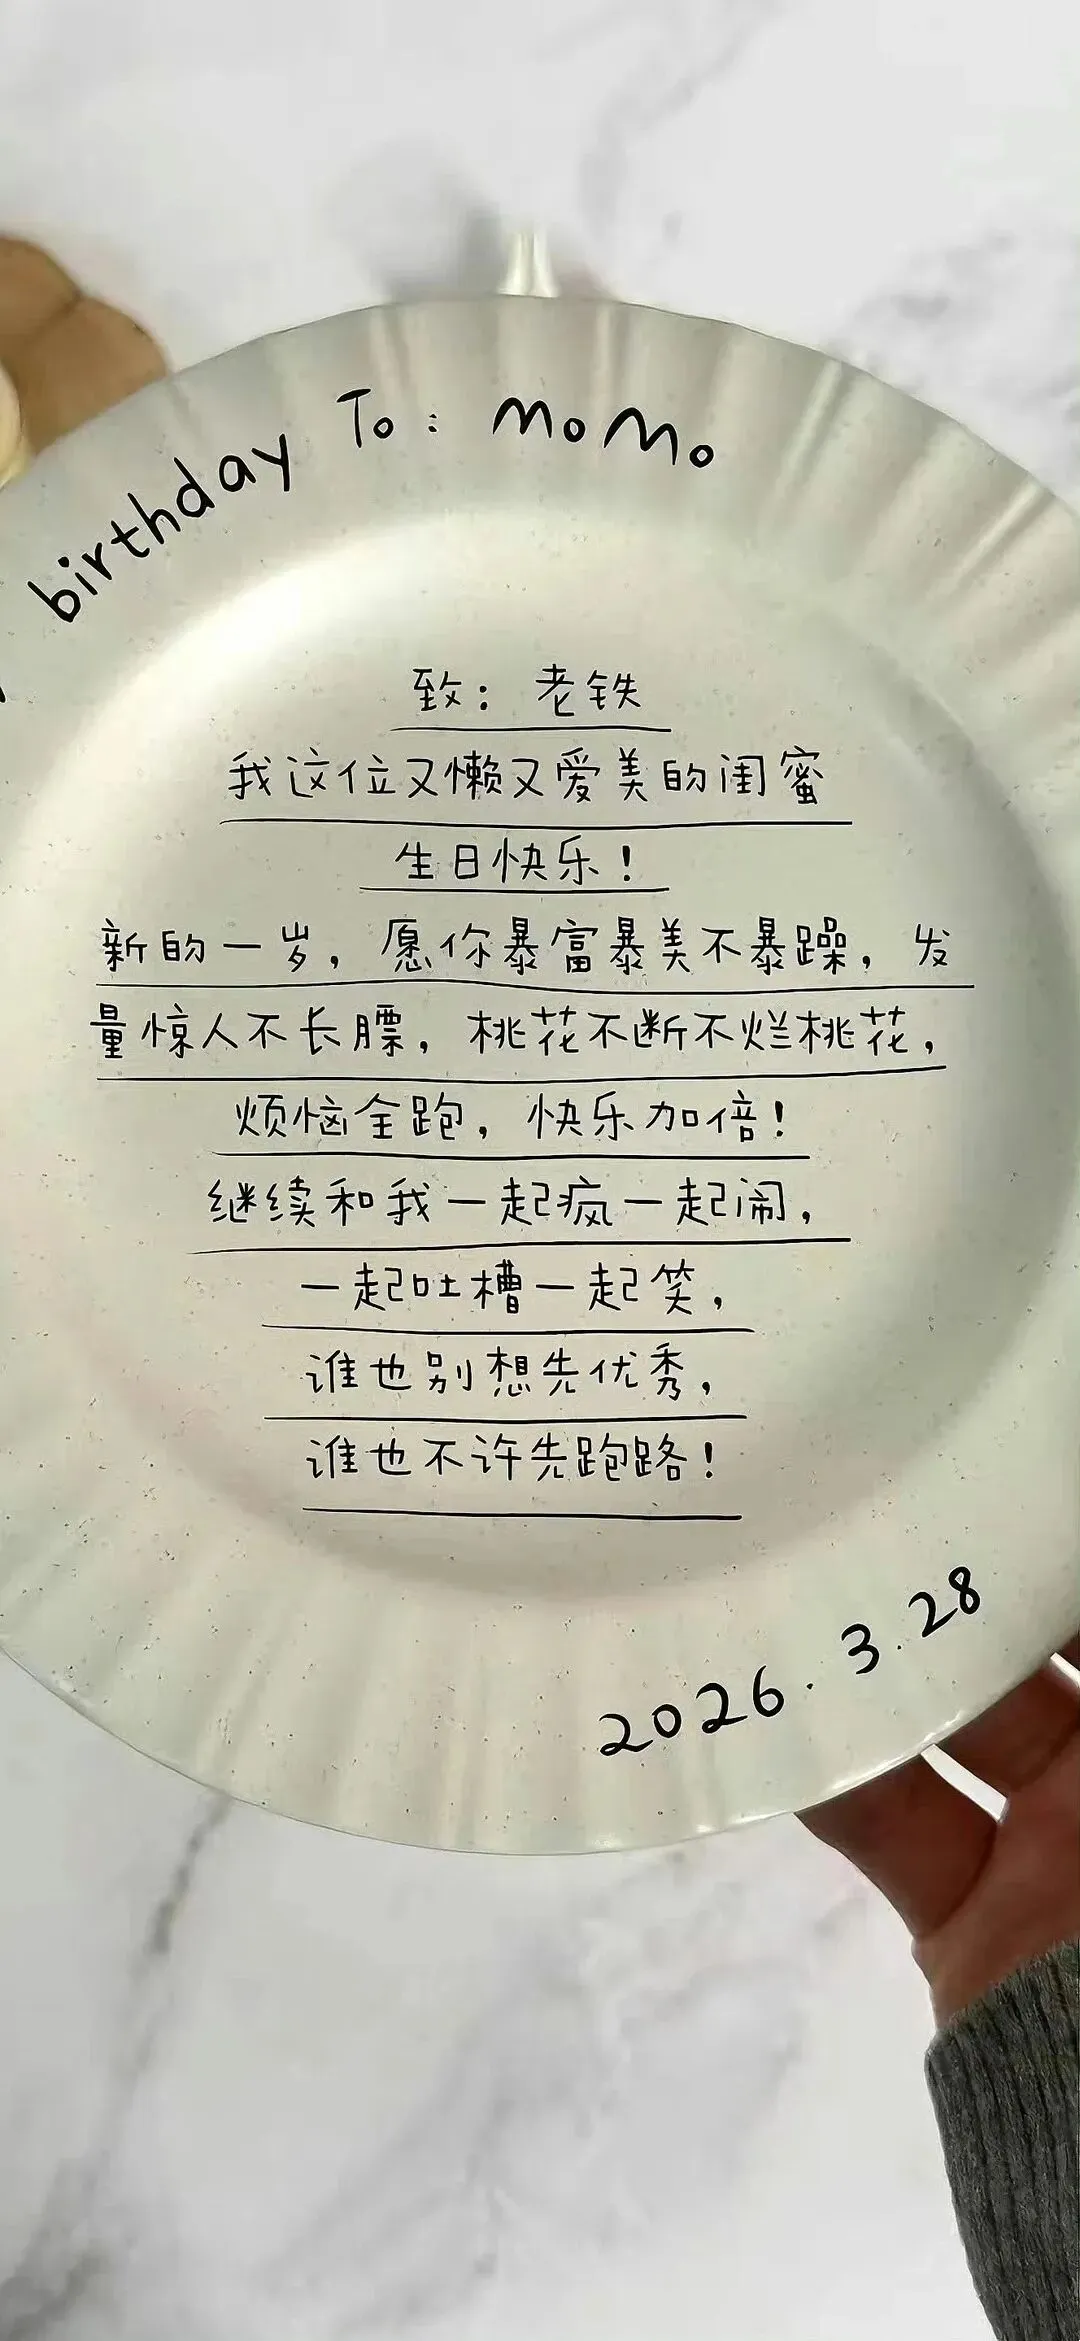 birthday To: MoMo
致：老铁
我这位又懒又爱美的闺蜜
生日快乐！
新的一岁，愿你暴富暴美不暴躁，发
量惊人不长膘，桃花不断不烂桃花，
烦恼全跑，快乐加倍！
继续和我一起疯一起闹，
一起吐槽一起笑，
谁也别想先优秀，
谁也不许先跑路！
2026.3.28